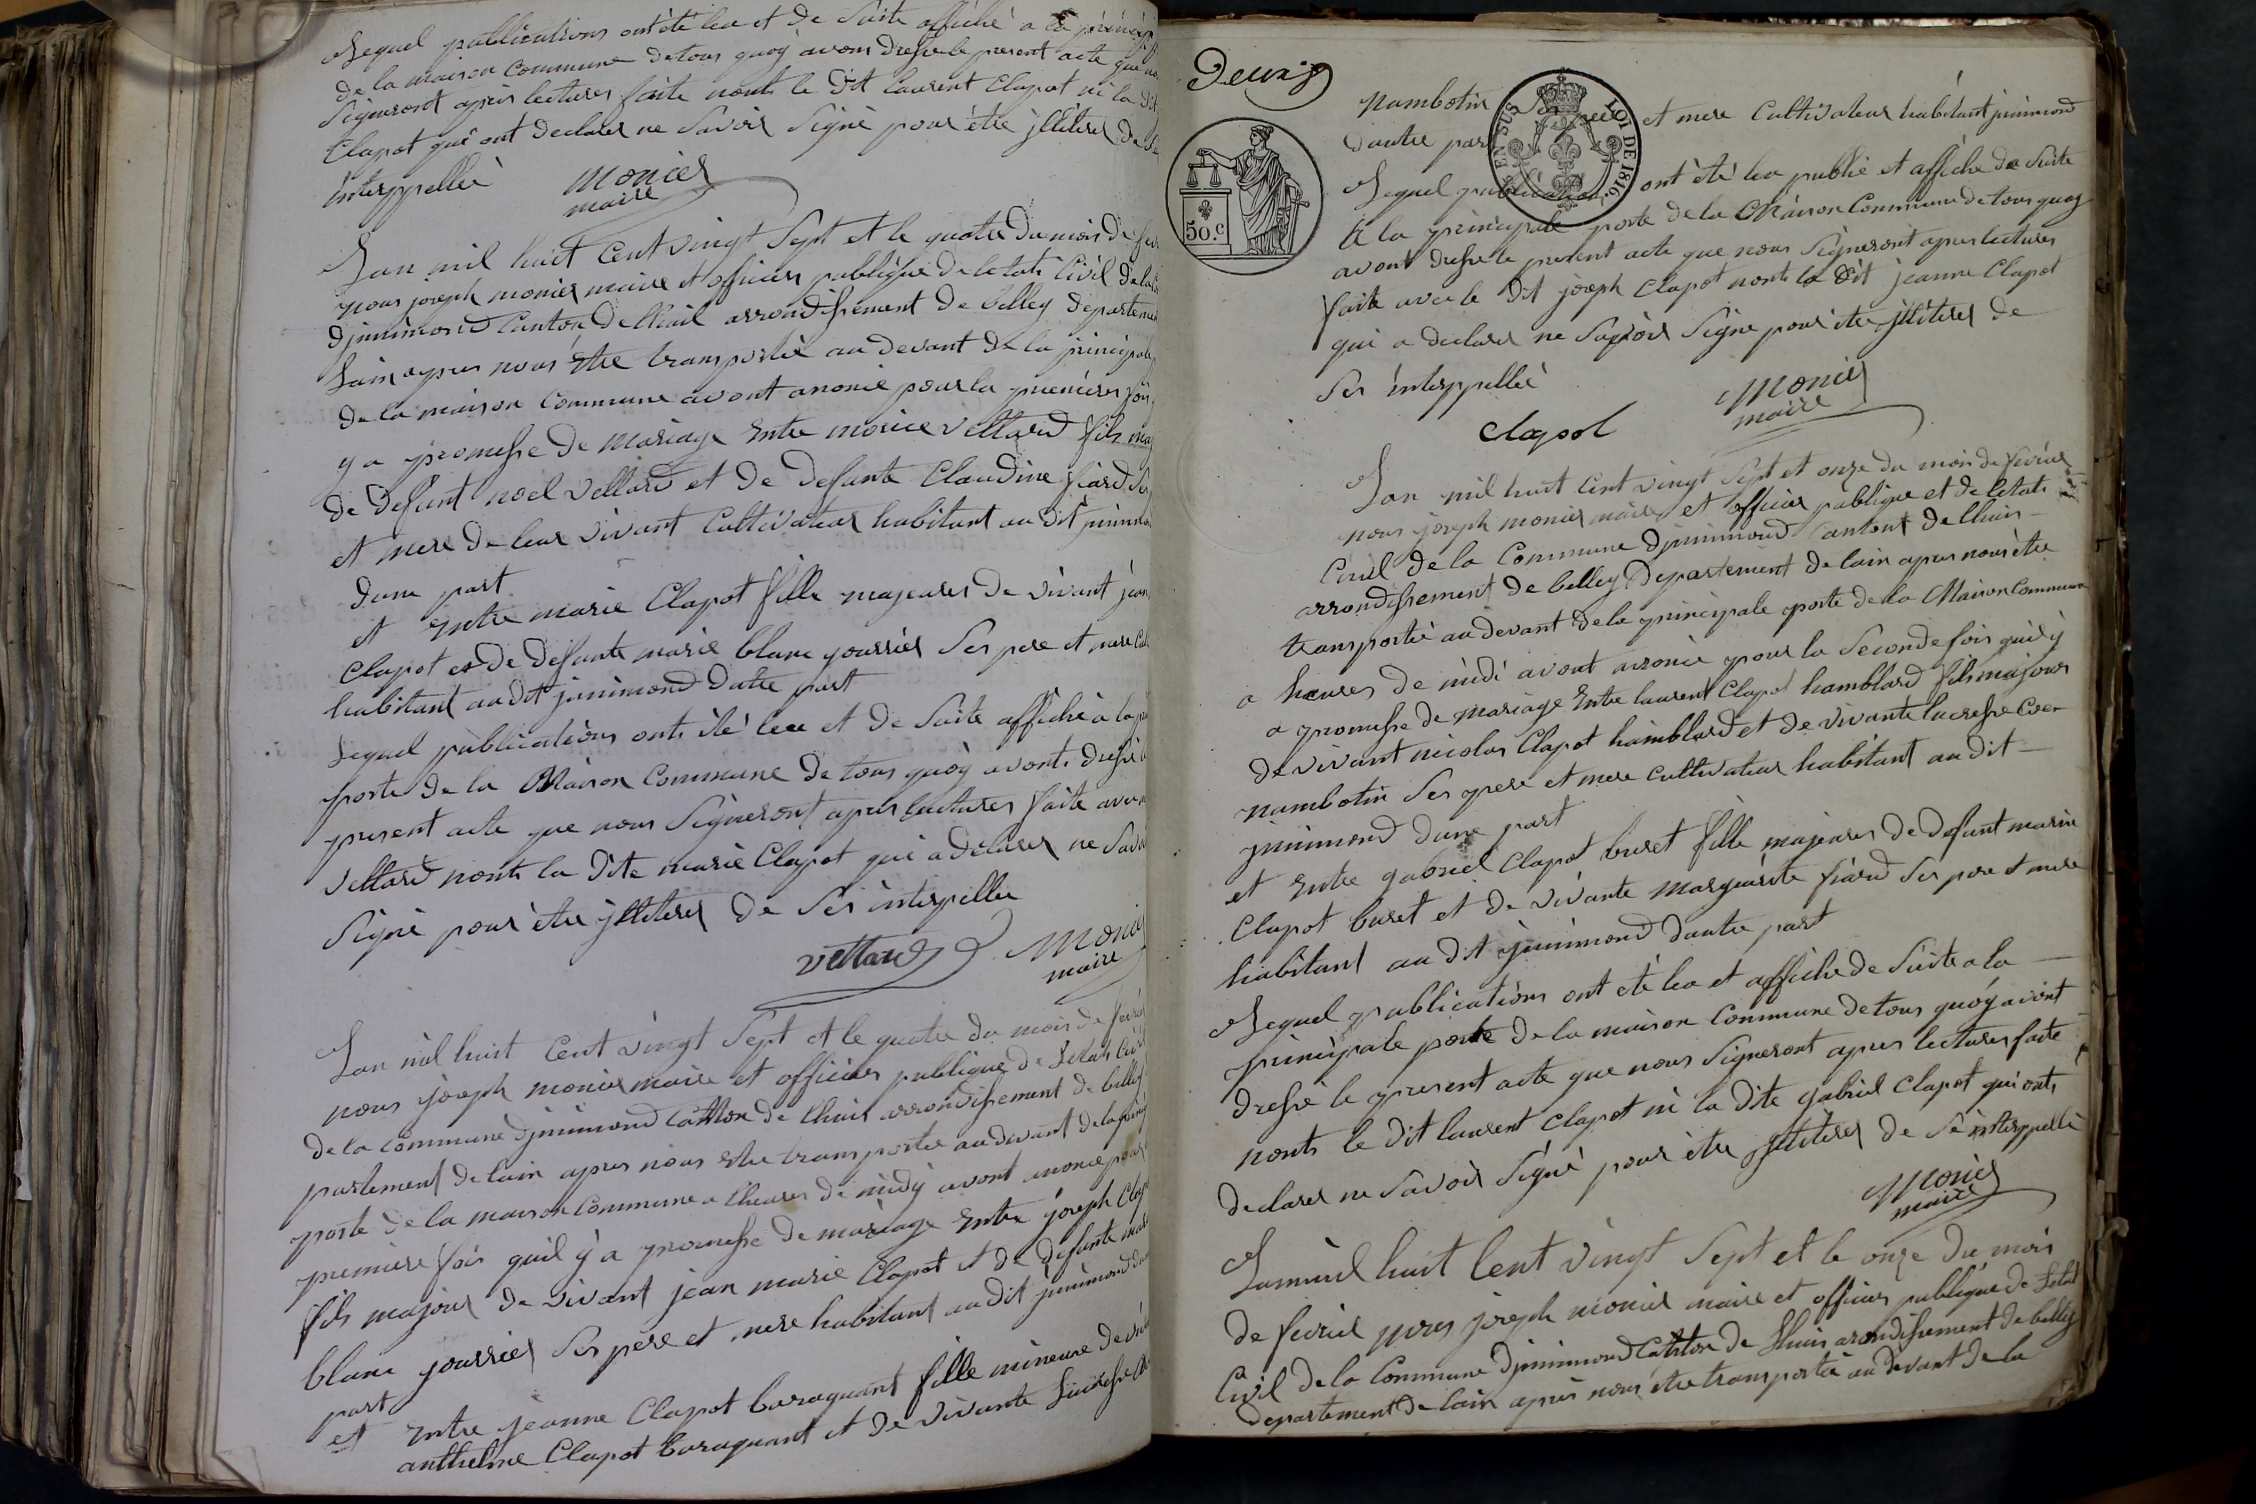 Lequel publications ont été leu et de suite affiché a la
de la maison commune de tous quoy avons dressé le present acte que
Signeront apres lectures faite nonts le dit laurent Clapot ni la dit
Clapot qui ont declarer ne Savoir Signé pour être jlliterer de
interppellée
monier
maire
Lan mil huit Cent vingt Sept et le quatre du mois de
nous joseph monier maire et officier publique de letat Civil de la
djnnimond Canton de lhuis arrondissement de belley departement
Lain apres nous être transportée au devant de la principale
de la maison Commune avont anoncé pour la premierer
y a promesse de mariage Entre morice vettard fils
de defunt noel vettard et de defunte Claudine fiard
et mere de leur vivant Cultivateur habitant au dit jnnimond
dune part
et Entre marie Clapot fille majeurer de vivant jean
Clapot et de defunte marie blanc pourrier Ses pere et mere
habitant au dit jnnimond dutre part
Lequel publications onts été leu et de Suite affiché a la
porte de la Maison Commune de tous quoy avonts dressé
present acte que nous Signeront apres lecturer faite avec
vettard nonts la dite marie Clapot qui a déclarer ne
Signé pour être jlliterer de Ses interpellée
vettard
Monier
maire
Lan mil huit Cent vingt Sept et le quatre du mois de
nous joseph monier maire et officier publique de Letat Civil
de la Commune djnnimond Canton de lhuis arrondissement de belley
partement de lain apres nous être transportée au devant de la
porte de la maison Commune a lheurer de midy avont anoncé pour
premiere fois quil y a promesse de mariage Entre joseph
fils majour de vivant jean marie Clapot et de defunte
blanc pourrier Ses pere et mere habitant au dit jnnimond
part
et Entre jeanne Clapot baraquant fille mineure de
anthelme Clapot baraquant et de vivante Lucresse
Deux
nambotin et mere Cultivateur habitant jnnimond
dautre part
EN SUS
LOI DE 1816.
50.c
Lequel publications ont été leu publié et affiché de Suite
a la principale porte de la Maison Commune de tous quoy
avont dressé le present acte que nous Signeront apres lecturer
faite avec le dit joseph Clapot nonts la dit jeanne Clapot
qui a declarer ne Savoir Signe pour être jlliterer de
Ses interppellée
Clapot
Monier
maire
Lan mil huit Cent vingt Sept et onze du mois de fevrier
nous joseph monier maire et officier publique et de letat
Civil de la Commune djnnimond Canton de lhuis
arrondissement de belley departement de lain apres nous être
transportée au devant de la principale porte de la Maison Commune
a heurer de midi avont anoncé pour la Seconde fois quil y
a promesse de mariage Entre laurent Clapot hamblard fils majour
de vivant nicolas Clapot hamblard et de vivante lucresse
nambotin Ses pere et mere cultivateur habitant au dit
jnnimond dune part
et Entre gabriel Clapot buret fille majeurer de defunt marin
Clapot buret et de vivante marguerite fiard Ses pere et mere
habitant au dit jnnimond dautre part
Lequel publications ont été leu et affiché de Suite a la
principale porte de la maison Commune de tous quoy avont
dressé le present acte que nous Signeront apres lecturer faite
nonts le dit laurent Clapot ni la dite gabriel Clapot qui onts
declarer ne Savoir Signé pour être jlliterer de Sé interppellé
Monier
maire
Lan mil huit Cent vingt Sept et le onze du mois
de fevrier nous joseph monier maire et officier publique de Letat
Civil de la Commune djnnimond Canton de Lhuis arondissement de belley
departement de lain apres nous être transportée au devant de la